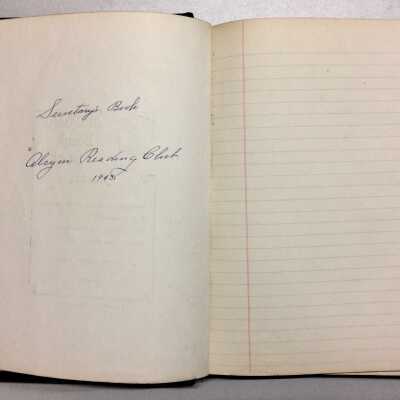 Secretary's Book
Alcyon Reading Club
1945